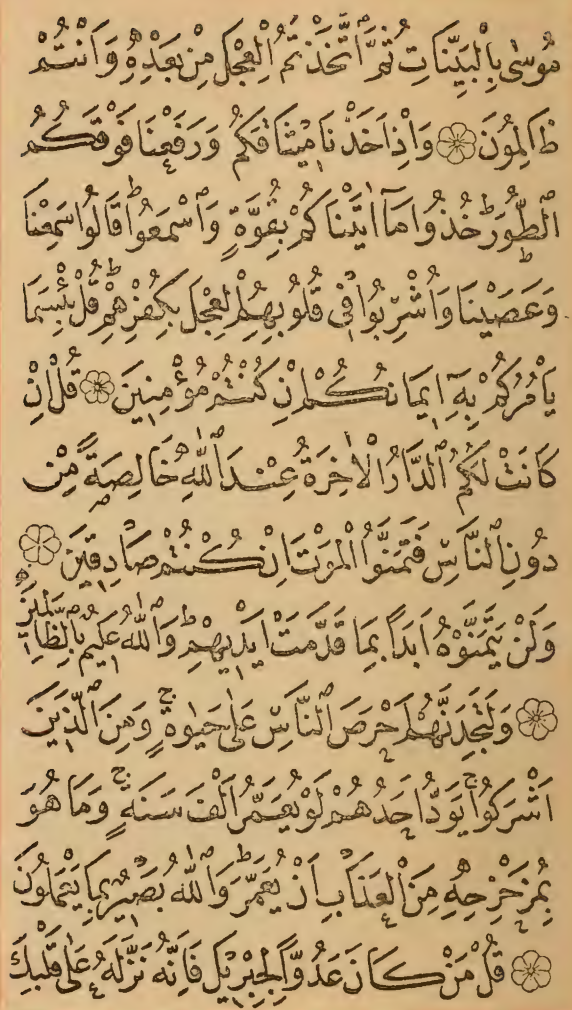 مُوسٰى بِالْبَيِّنَاتِ ثُمَّ ٱتَّخَذْتُمُ الْعِجْلَ مِنْ بَعْدِهِ وَاَنْتُمْ
ظَالِمُونَ ۞ وَاِذْ اَخَذْنَا مِيثَاقَكُمْ وَرَفَعْنَا فَوْقَكُمُ
ٱلطُّورَۜ خُذُوا مَٓا اٰتَيْنَاكُمْ بِقُوَّةٍ وَٱسْمَعُواۜ قَالُوا سَمِعْنَا
وَعَصَيْنَا وَاُشْرِبُوا فِى قُلُوبِهِمُ الْعِجْلَ بِكُفْرِهِمْۜ قُلْ بِئْسَمَا
يَأْمُرُكُمْ بِهِٓ اِيمَانُكُمْ اِنْ كُنْتُمْ مُؤْمِنِينَ ۞ قُلْ اِنْ
كَانَتْ لَكُمُ ٱلدَّارُ الْاٰخِرَةُ عِنْدَ ٱللّٰهِ خَالِصَةً مِنْ
دُونِ ٱلنَّاسِ فَتَمَنَّوُا الْمَوْتَ اِنْ كُنْتُمْ صَادِقِينَ ۞
وَلَنْ يَتَمَنَّوْهُ اَبَدًا بِمَا قَدَّمَتْ اَيْدِيهِمْۜ وَٱللّٰهُ عَلِيمٌ بِٱلظَّالِمِينَ
۞ وَلَتَجِدَنَّهُمْ اَحْرَصَ ٱلنَّاسِ عَلٰى حَيٰوةٍۚ وَمِنَ ٱلَّذِينَ
اَشْرَكُواۚ يَوَدُّ اَحَدُهُمْ لَوْ يُعَمَّرُ اَلْفَ سَنَةٍۚ وَمَا هُوَ
بِمُزَحْزِحِهِ مِنَ الْعَذَابِ اَنْ يُعَمَّرَۜ وَٱللّٰهُ بَصِيرٌ بِمَا يَعْمَلُونَ
۞ قُلْ مَنْ كَانَ عَدُوًّا لِجِبْرِيلَ فَاِنَّهُ نَزَّلَهُ عَلٰى قَلْبِكَ